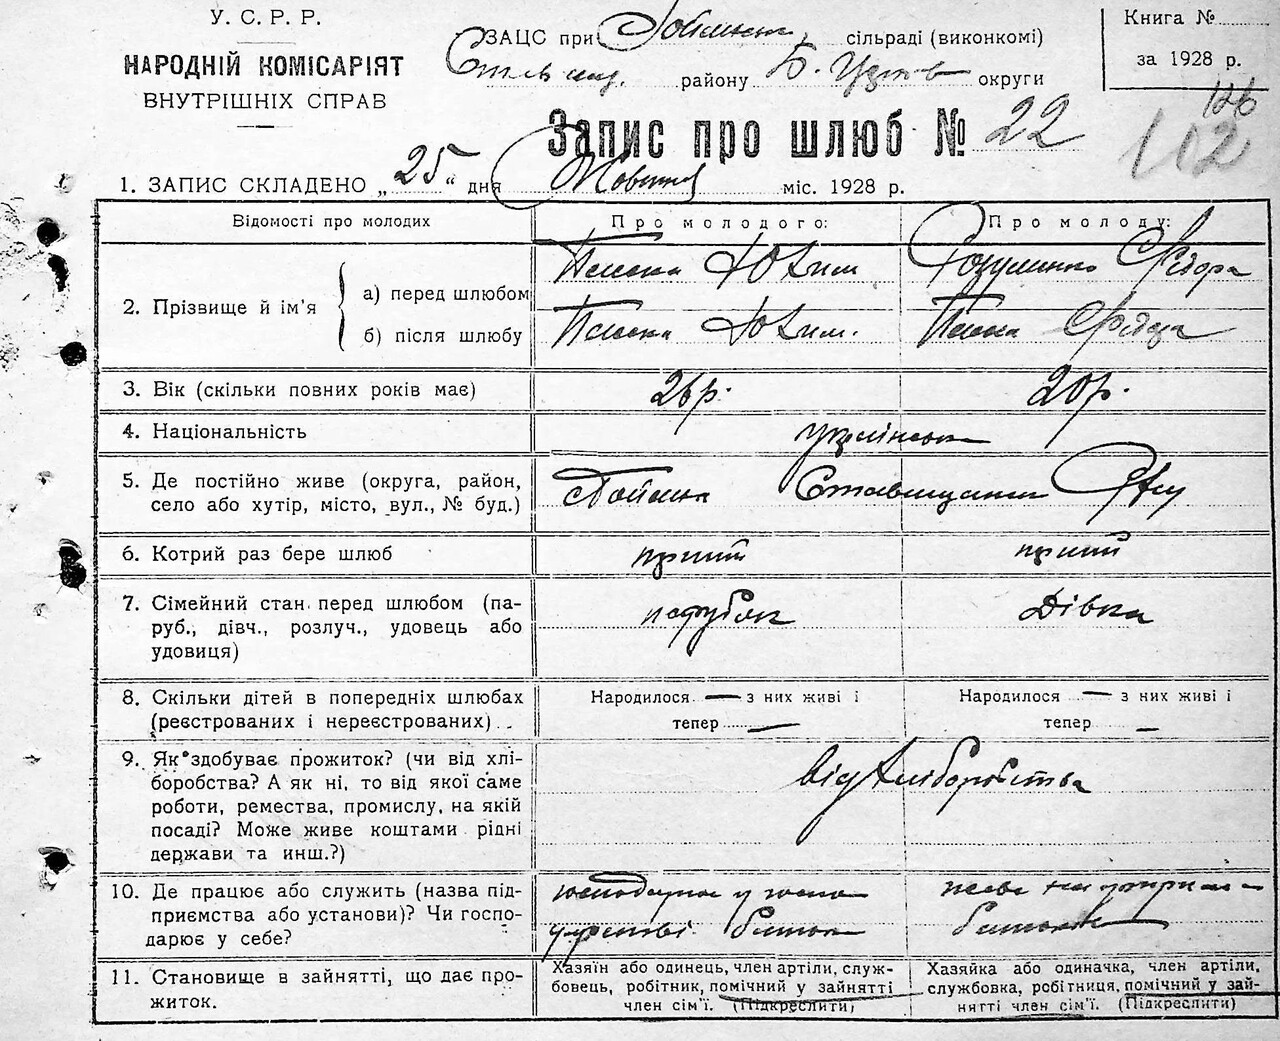 У. С. Р. Р.
НАРОДНІЙ КОМІСАРІЯТ
ВНУТРІШНІХ СПРАВ
ЗАЦС при сільраді (виконкомі)
району Б. округи
Книга №
за 1928 р.
126
102
Запис про шлюб № 22
1. ЗАПИС СКЛАДЕНО „ 25 “ дня Жовтня міс. 1928 р.
Відомості про молодих
Про молодого:
Про молоду:
2. Прізвище й ім'я
а) перед шлюбом
Юхим
б) після шлюбу
Юхим.
3. Вік (скільки повних років має)
26 р.
20 р.
4. Національність
українська
5. Де постійно живе (округа, район,
село або хутір, місто, вул., № буд.)
6. Котрий раз бере шлюб
перший
перший
7. Сімейний стан перед шлюбом (па-
руб., дівч., розлуч., удовець або
удовиця)
парубок
Дівка
8. Скільки дітей в попередніх шлюбах
(реєстрованих і нереєстрованих)
Народилося — з них живі і
тепер —
Народилося — з них живі і
тепер —
9. Як здобуває прожиток? (чи від хлі-
боробства? А як ні, то від якої саме
роботи, ремества, промислу, на якій
посаді? Може живе коштами рідні
держави та инш.?)
від хліборобства
10. Де працює або служить (назва під-
приємства або установи)? Чи госпо-
дарює у себе?
господарює у госпо-
дарстві батька
батьків
11. Становище в зайнятті, що дає про-
житок.
Хазяїн або одинець, член артіли, служ-
бовець, робітник, помічний у зайнятті
член сім'ї. (Підкреслити)
Хазяйка або одиначка, член артіли,
службовка, робітниця, помічний у зай-
нятті член сім'ї. (Підкреслити)